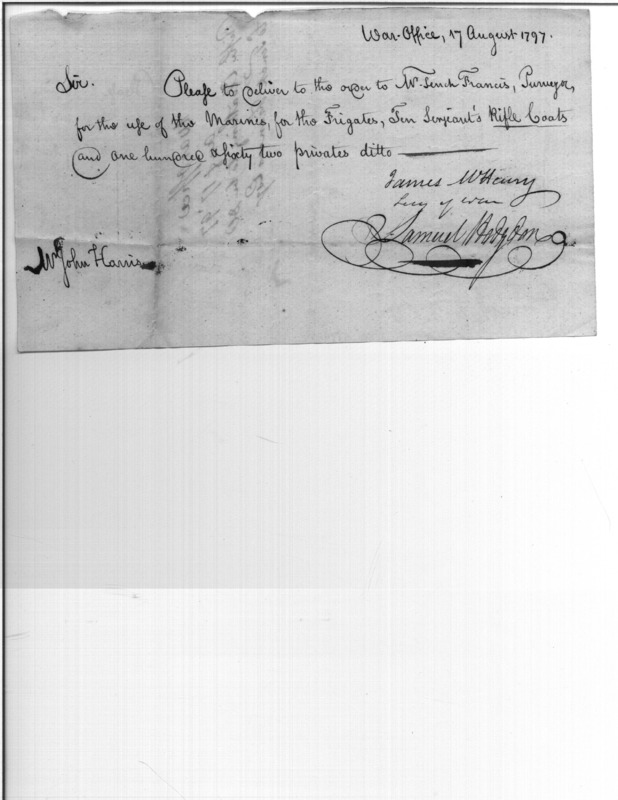 War-Office, 17 August 1797.
Sir. Please to deliver to the order to Mr. Tench Francis, Purveyor,
for the use of the Marines, for the Frigates, Ten Serjeant's Rifle Coats
and one hundred & sixty two privates ditto
James McHenry
Secy of war
Samuel Hodgdon
Mr John Harris